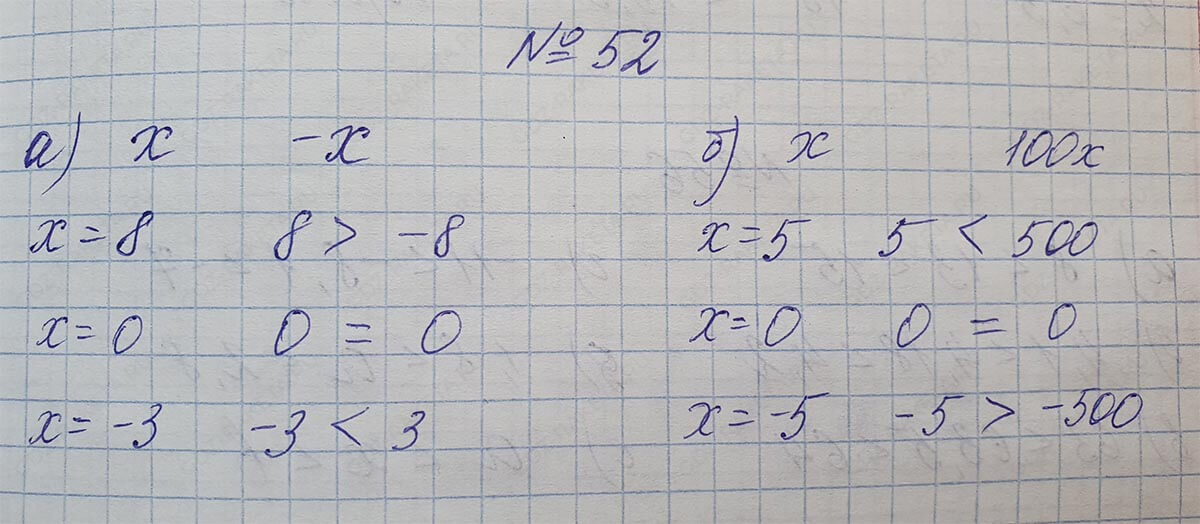 № 52
а) x -x
x = 8 8 > -8
x = 0 0 = 0
x = -3 -3 < 3
б) x 100x
x = 5 5 < 500
x = 0 0 = 0
x = -5 -5 > -500